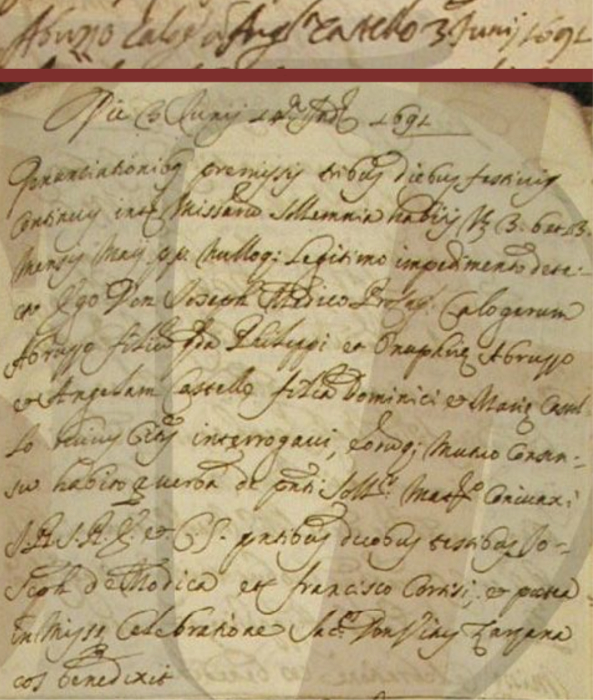 Abruzzo Calog.o Ang.a Castello 3 Junij 1691
Die 3 Junij 14 Ind. 1691
Denunciationibus premissis tribus diebus festivis
continuis inter Missarum sollemnia habitis
Mensis Maij nulloq; legitimo impedimento dete-
cto Ego Don Joseph Medico Calogerum
Abruzzo filium Philippi et Onuphrię Abruzzo
et Angelam Castello filia Dominici et Marię Castel-
lo huius Citis interrogavi, eorumq; mutuo Consen-
su habito p verba de pnti Coniunxi
S. R. et pntibus duobus testibus Jo-
seph de Modica et Francisco Cortisi, et postea
in Missę Celebratione Sac. Don
eos benedixit